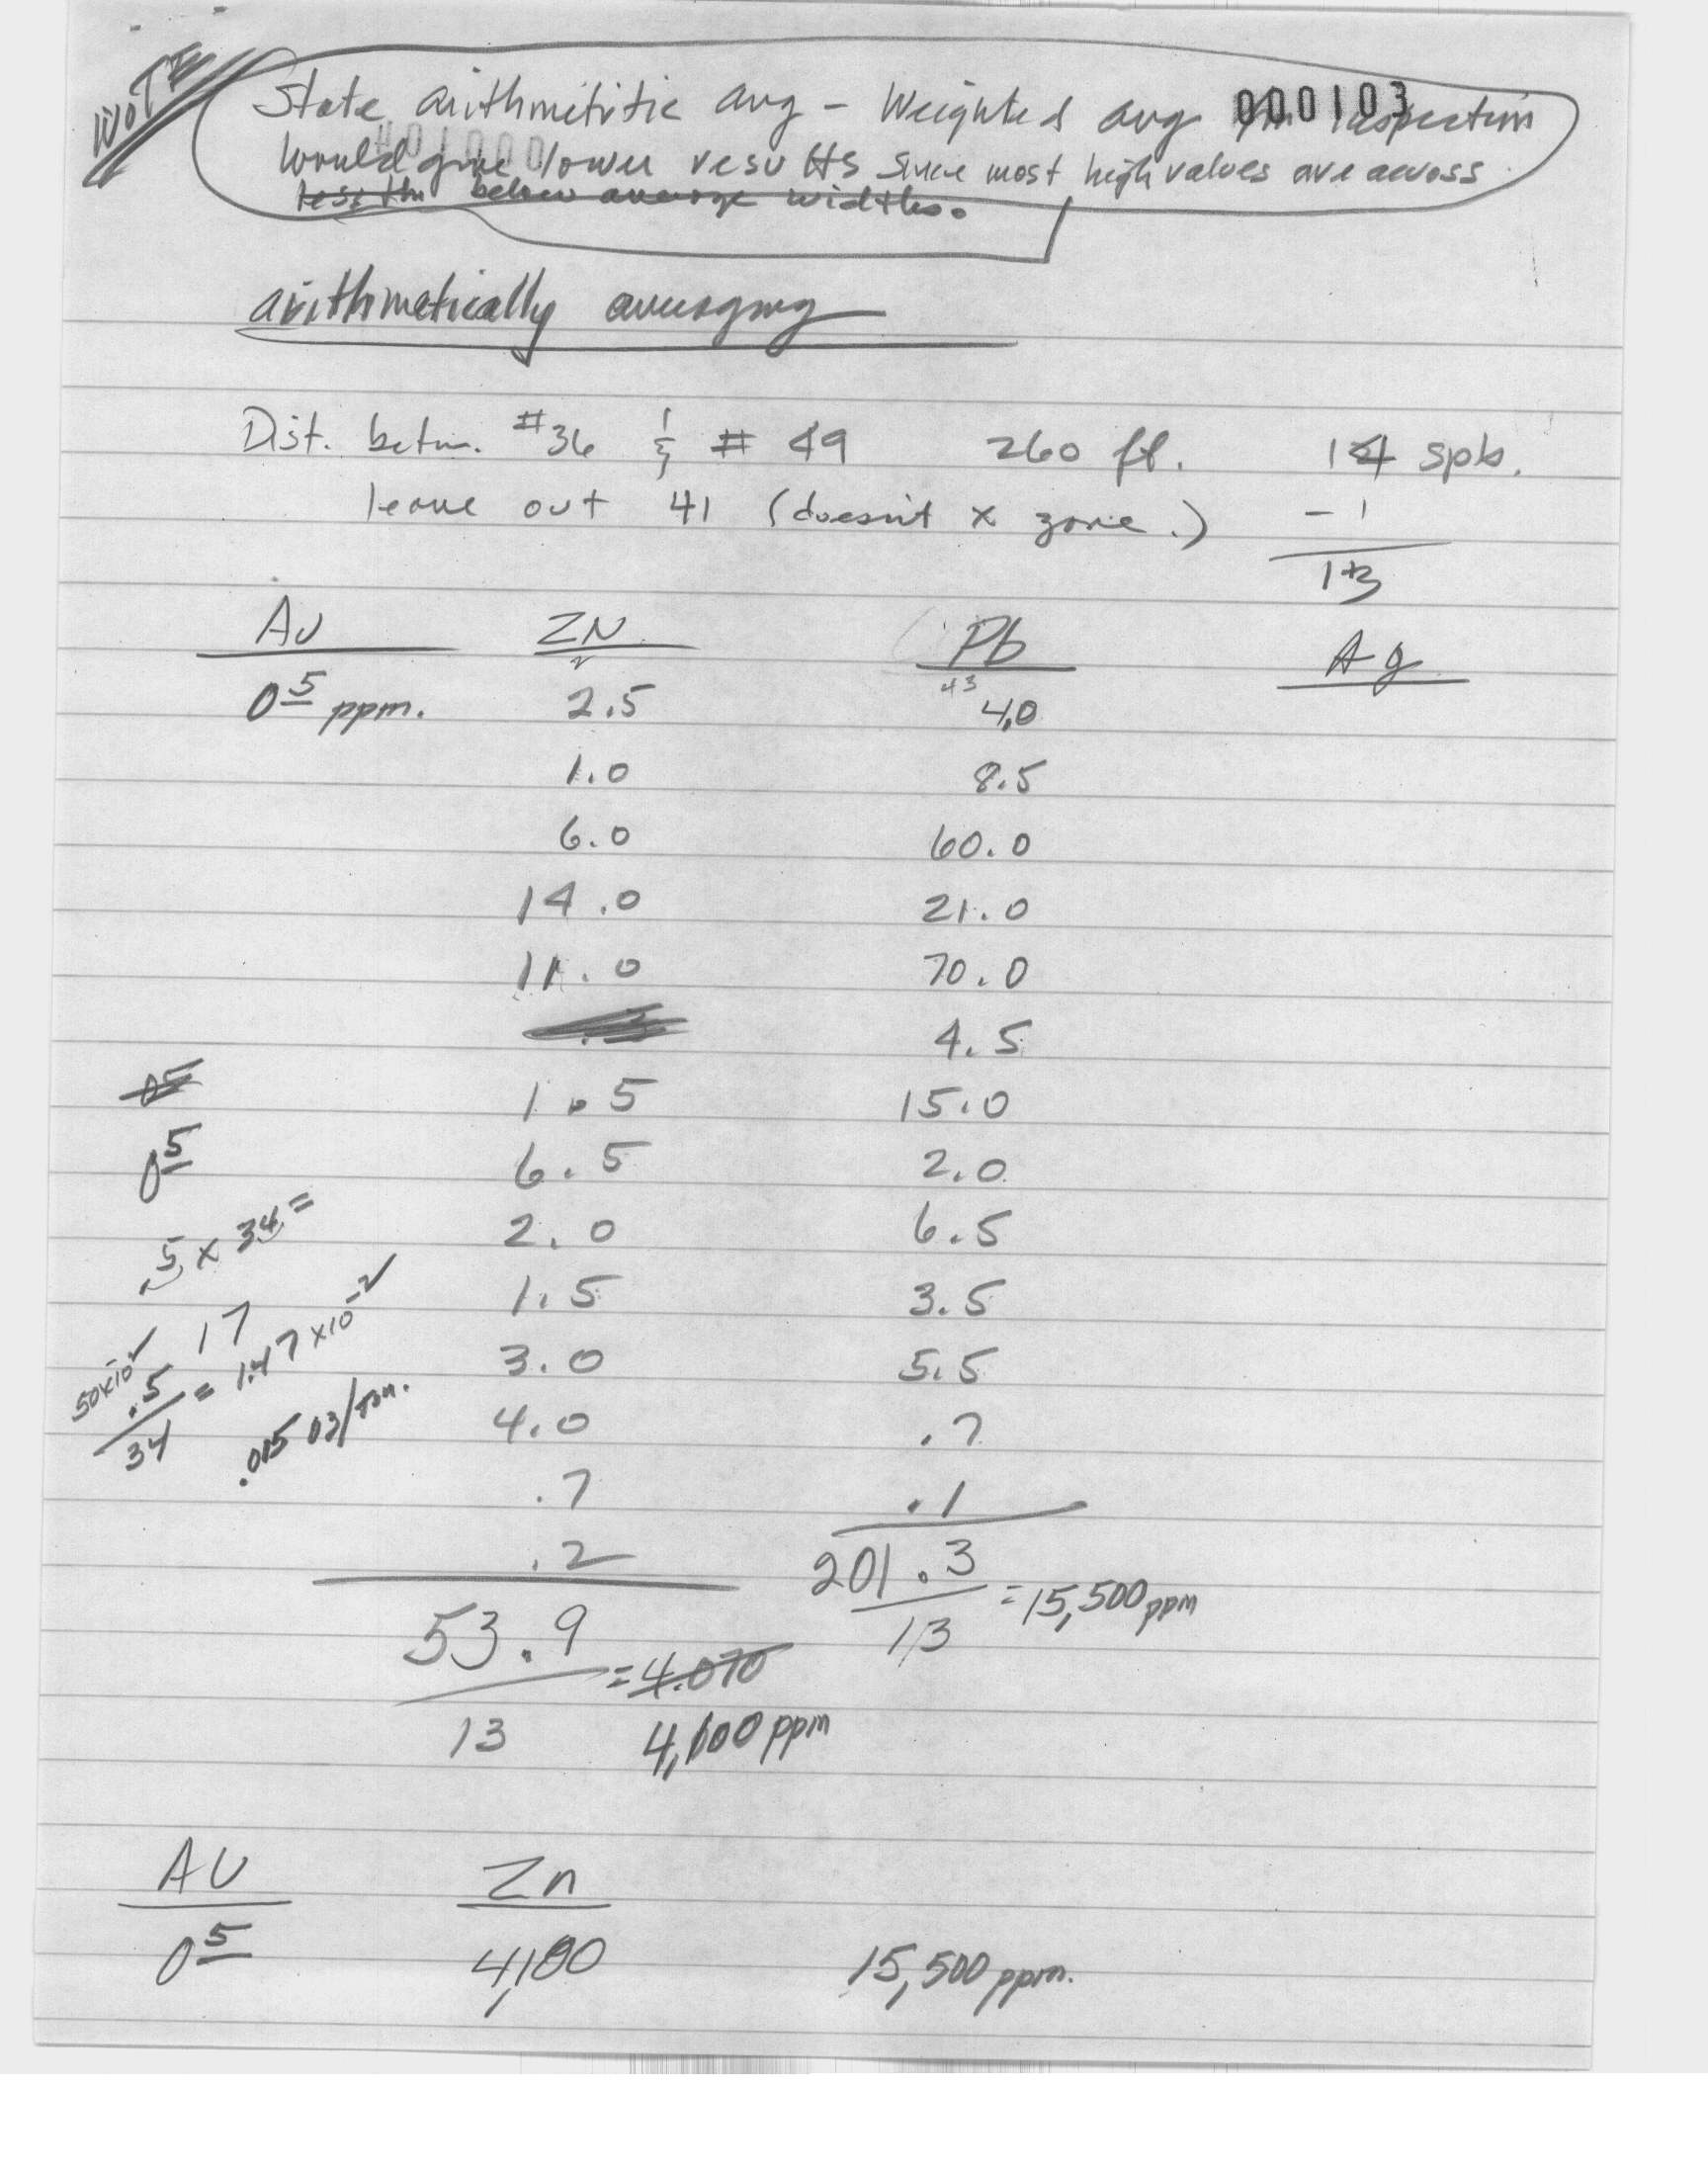 NOTE
State arithmititic avg - Weighted avg inspection
000103
would give lower results since most high values are across
less thn below average widths.
arithmetically averaging
Dist. betw. #36 & # 49 260 ft. 14 spls.
leave out 41 (doesn't x zone.) - 1
13
AU ZN Pb Ag
0 5 ppm. 2.5 4.0
1.0 8.5
6.0 60.0
14.0 21.0
11.0 70.0
4.5
05 1.5 15.0
0 5 6.5 2.0
.5 x 34 = 2.0 6.5
17 1.5 3.5
50x10 .5 / 34 = 1.47 x10 -2 3.0 5.5
.015 oz/ton. 4.0 .7
.7 .1
.2 201.3 / 13 = 15,500 ppm
53.9 / 13 = 4.070
4,100 ppm
AU Zn
0 5 4,100 15,500 ppm.